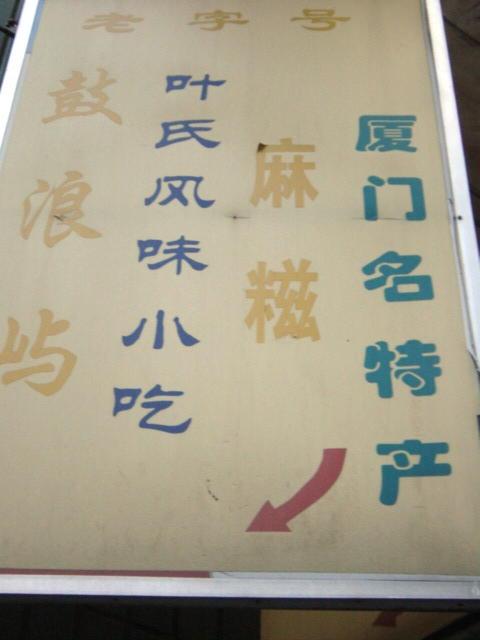 老字号
鼓浪屿
叶氏风味小吃
麻糍
厦门名特产